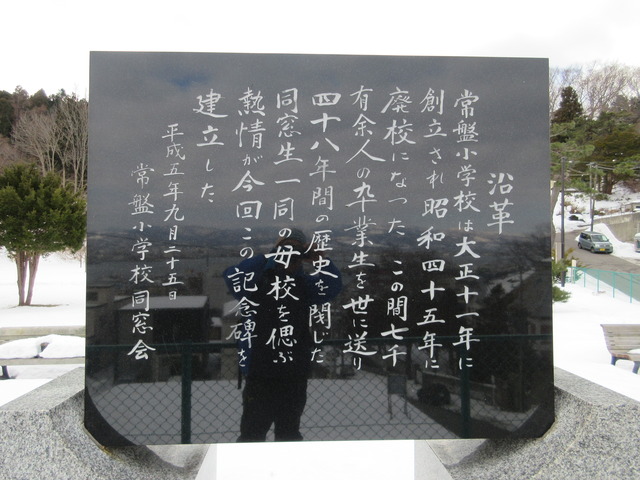 沿革
常盤小学校は大正十一年に
創立され昭和四十五年に
廃校になった この間七千
有余人の卆業生を世に送り
四十八年間の歴史を閉じた
同窓生一同の母校を偲ぶ
熱情が今回この記念碑を
建立した
平成五年九月二十五日
常盤小学校同窓会